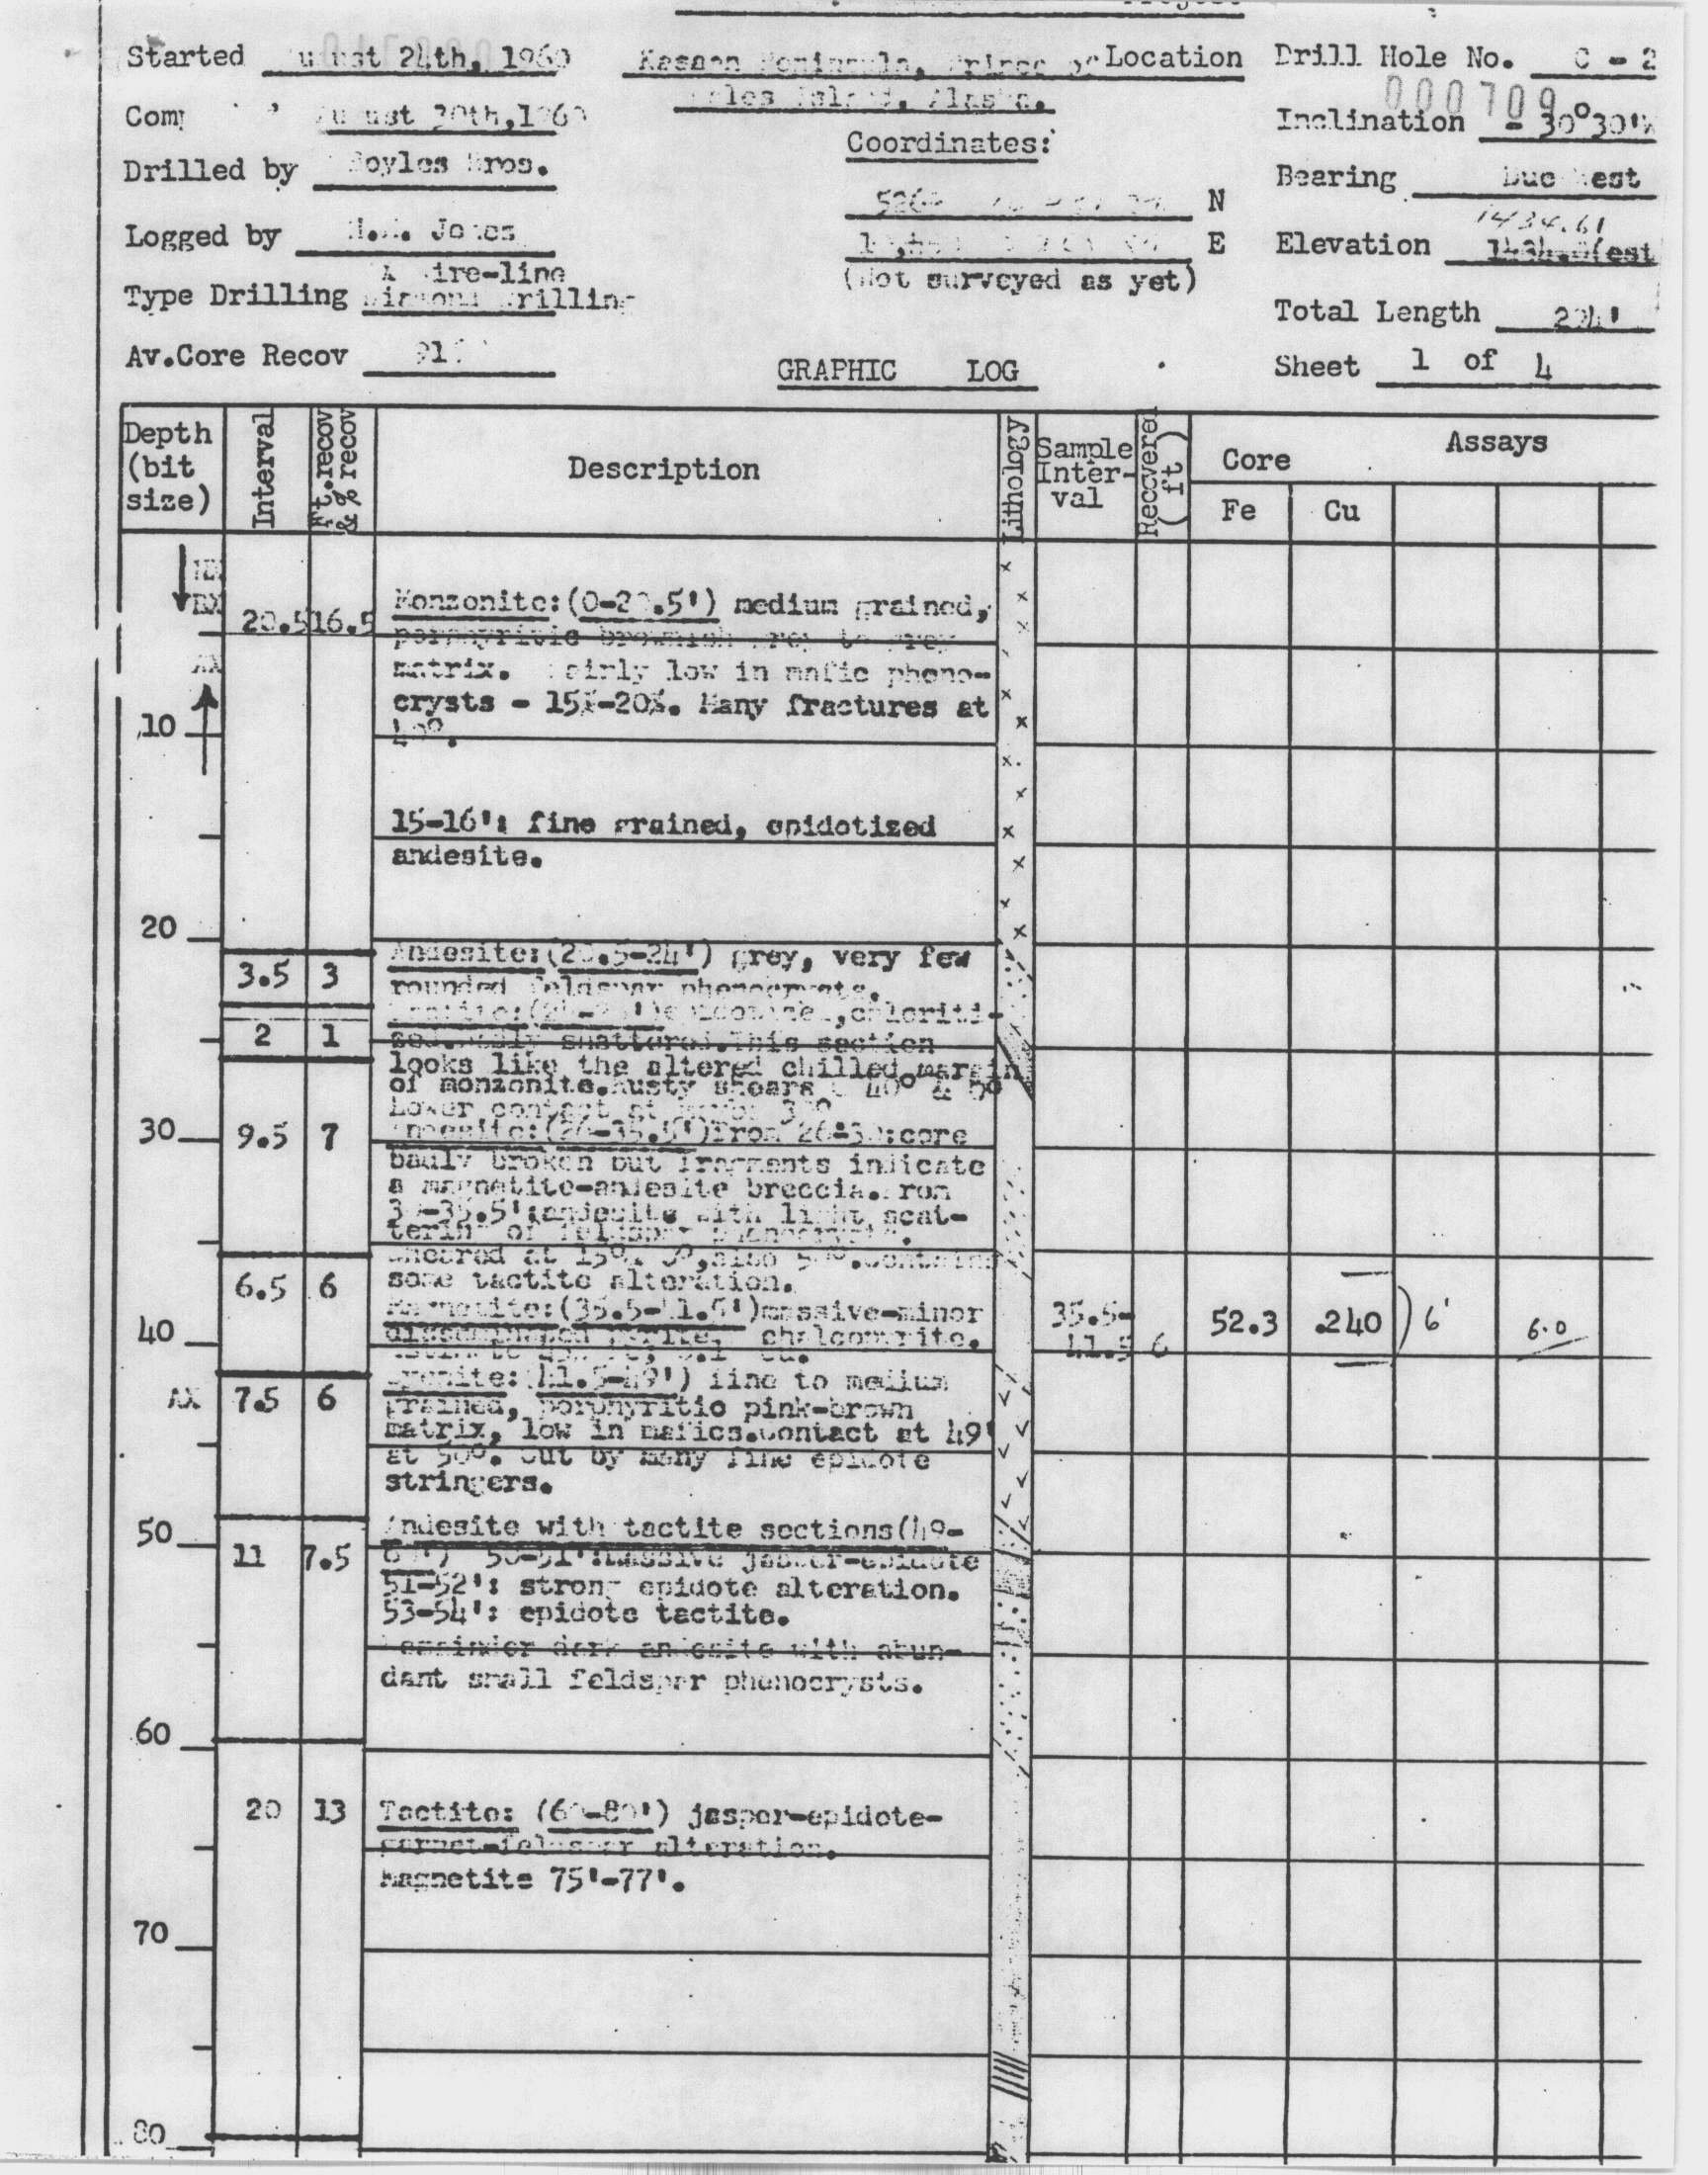 Started August 24th, 1960
Kasaan Peninsula, Prince of Location
Wales Island, Alaska.
Drill Hole No. C - 2
000709
August 30th, 1960
Inclination - 30°30'
Drilled by Boyles Bros.
Coordinates:
Bearing Due West
N
Logged by Jones
1434.61
E
Elevation 1434.0(est
(Not surveyed as yet)
Type Drilling AX Wire-line
Diamond Drilling
Total Length
Av.Core Recov 91
GRAPHIC LOG
Sheet 1 of 4
Depth (bit size)
Interval
Ft.recov & % recov
Description
Lithology
Sample Inter-val
Recovered ( ft )
Assays
Core
Fe
Cu
NX
BX
20.5 16.5
Monzonite:(0-20.5') medium grained,
porphyritic brownish grey to grey
AX
matrix. Fairly low in mafic pheno-
crysts - 15%-20%. Many fractures at
10
40°.
15-16': fine grained, epidotized
andesite.
20
Andesite:(20.5-24') grey, very few
3.5 3
rounded feldspar phenocrysts.
(24-26')epidotized,chloriti-
2 1
zed.Badly shattered.This section
looks like the altered chilled margin
of monzonite.Rusty shears @ 40° &
Lower contact at
30
9.5 7
Andesite:(26-35.5')From 26-30:core
badly broken but fragments indicate
a magnetite-andesite breccia.From
30-35.5':andesite with light scat-
tering of feldspar phenocrysts.
Sheared at 15°, also Contains
some tactite alteration.
6.5 6
Magnetite:(35.5-41.5')massive-minor
disseminated pyrite, chalcopyrite.
35.5-
41.5 6
52.3 .240 ) 6'
6.0
40
Syenite:(41.5-49') fine to medium
AX 7.5 6
grained, porphyritic pink-brown
matrix, low in mafics.Contact at 49'
at 50°. Cut by many fine epidote
stringers.
50
Andesite with tactite sections(49-
11 7.5
60') 50-51':massive jasper-epidote
51-52': strong epidote alteration.
53-54': epidote tactite.
Remainder dark andesite with abun-
dant small feldspar phenocrysts.
60
20 13
Tactite: (60-80') jasper-epidote-
garnet-feldspar alteration.
Magnetite 75'-77'.
70
80